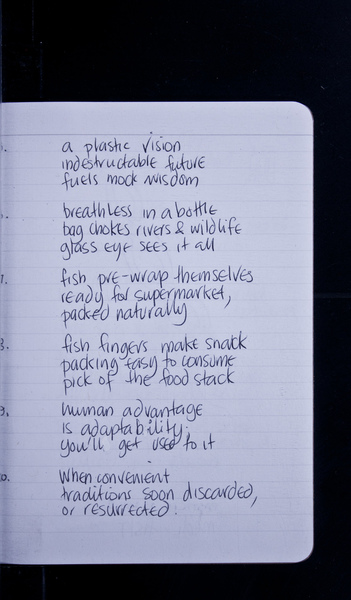 a plastic vision
indestructable future
fuels mock wisdom
breathless in a bottle
bag chokes rivers & wildlife
glass eye sees it all
7.
fish pre-wrap themselves
ready for supermarket,
packed naturally
8.
fish fingers make snack
packing easy to consume
pick of the food stack
9.
human advantage
is adaptability.
you'll get used to it
0.
When convenient
traditions soon discarded,
or resurrected.